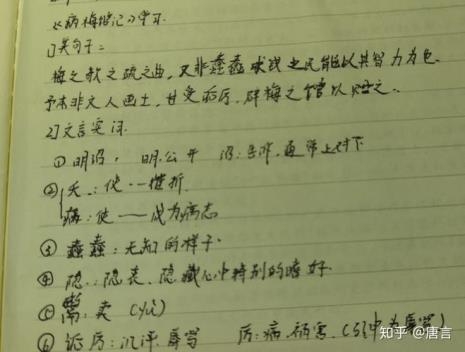 《病梅馆记》学习.
1)关句子:
梅之欹之疏之曲, 又非蠢蠢求钱之民能以其智力为也.
予本非文人画士, 甘受诟厉, 辟梅之馆以贮之.
2)文言实词.
①明诏, 明:公开 诏:告诉,通常上对下
②夭:使……摧折
病:使——成为病态
③蠢蠢:无知的样子.
④隐:隐衷、隐藏心中特别的嗜好.
⑤鬻:卖 (yù)
⑥诟厉:讥评、辱骂 厉:病,祸害.(引申为辱骂)
知乎 @唐言